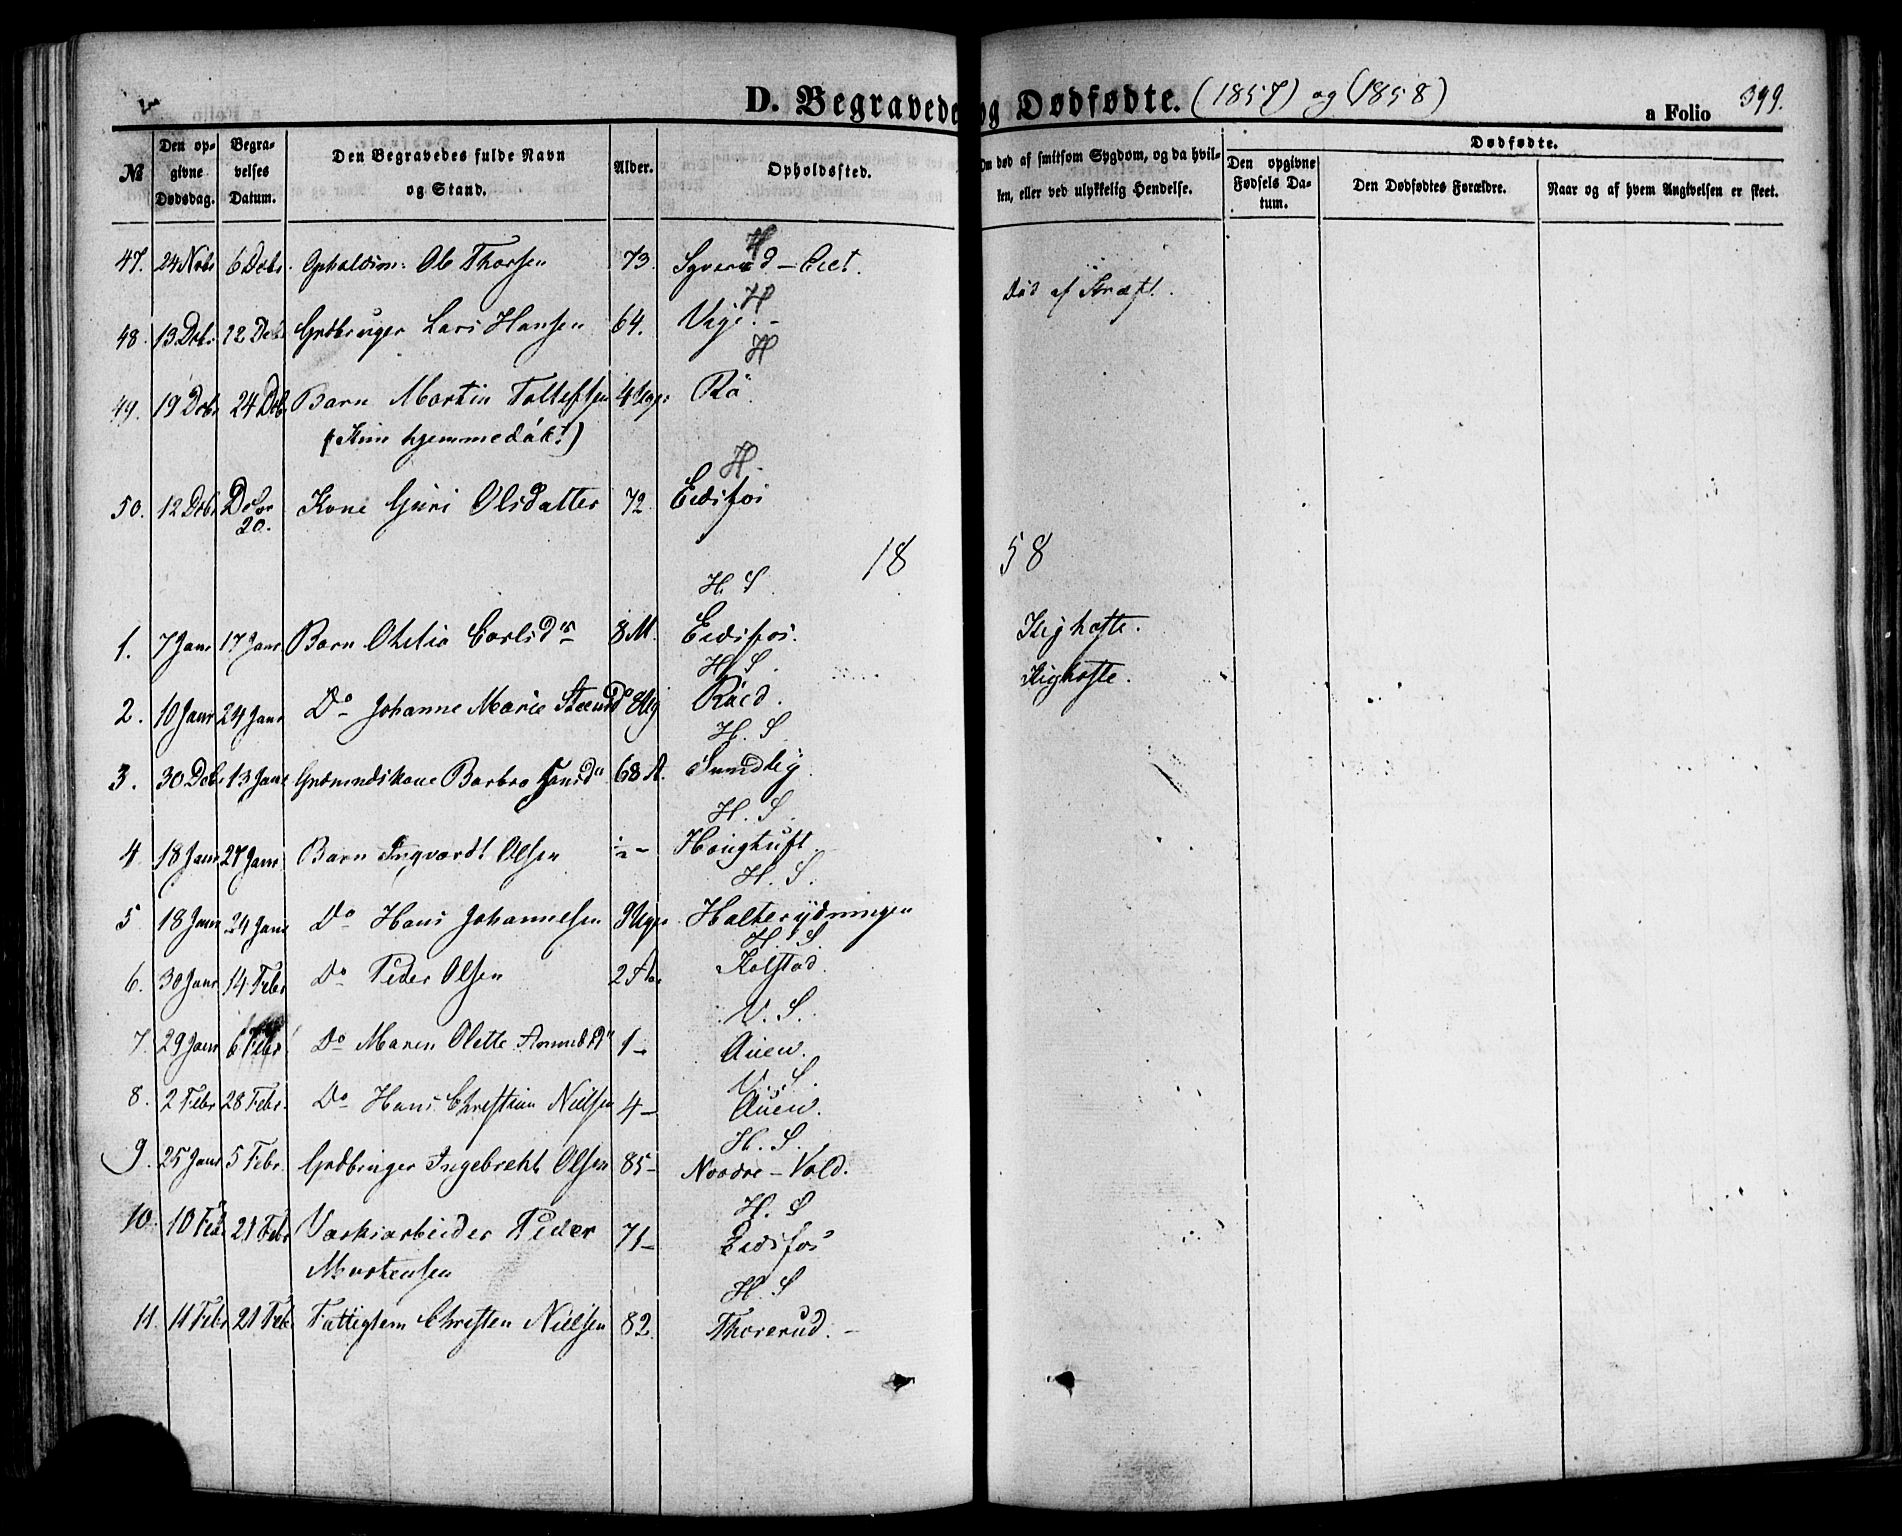 D. Begravede og Dødfødte. (1857) og (1858)
a Folio 399.
№ Den opgivne Dødsdag. Begravelses Datum. Den Begravedes fulde Navn og Stand. Alder. Opholdssted. Om død af smitsom Sygdom, og da hvilken, eller ved ulykkelig Hendelse. Dødfødte.
Den opgivne Fødsels Datum. Den Dødfødtes Forældre. Naar og af hvem Angivelsen er skeet.
H
47. 24 Nobr 6 Debr. Opholdsm: Ole Thorsen 73. Syverud-Eiet.
Død af Kræft.
H
48. 13 Debr 22 Debr Grdbruger Lars Hansen 64. Vige.
H
49. 19 Debr 24 Deb Barn Martin Tollefsen 4 Uger Rø.
(kun hjemmedøbt)
H.
50. 12 Debr Debr 20. Kone Guri Olsdatter 72. Eidsfos
18 58
H. S.
1. 7 Janr 17 Janr Barn Othilia Carlsdr 8 M. Eidsfos. Kighoste.
H. S.
2. 10 Janr 24 Janr Do Johanne Marie Steensd Do 8 Ug Røed. Kighoste.
H. S.
3. 30 Deb 13 Janr Grdmndskone Barbro Hansdr 68 A. Sundby
H. S.
4 18 Janr 27 Janr Barn Ingvardt Olsen Haugtuft.
H. S.
5 18 Janr 24 Janr Do Hans Johannesen 9 Uger Holterydningen
H. S.
6. 30 Janr 14 Febr Do Peder Olsen 2 Kolstad.
V. S.
7. 29 Janr 6 Febr Do Maren Olette Amundsdr 1 - Auen.
V. S.
8. 2 Febr 28 Febr. Do Hans Christian Nielsen 4 - Auen.
H. S.
9. 25 Janr 5 Febr. Grdbruger Ingebreht Olsen 85 - Nordre-Vold.
H. S
10. 10 Feb 21 Febr Værksarbeider Peder 71 - Eidsfos
Mortensen
H. S
11. 11 Febr 21 Feb Fattiglem Christen Nielsen 82. Thorerud. -